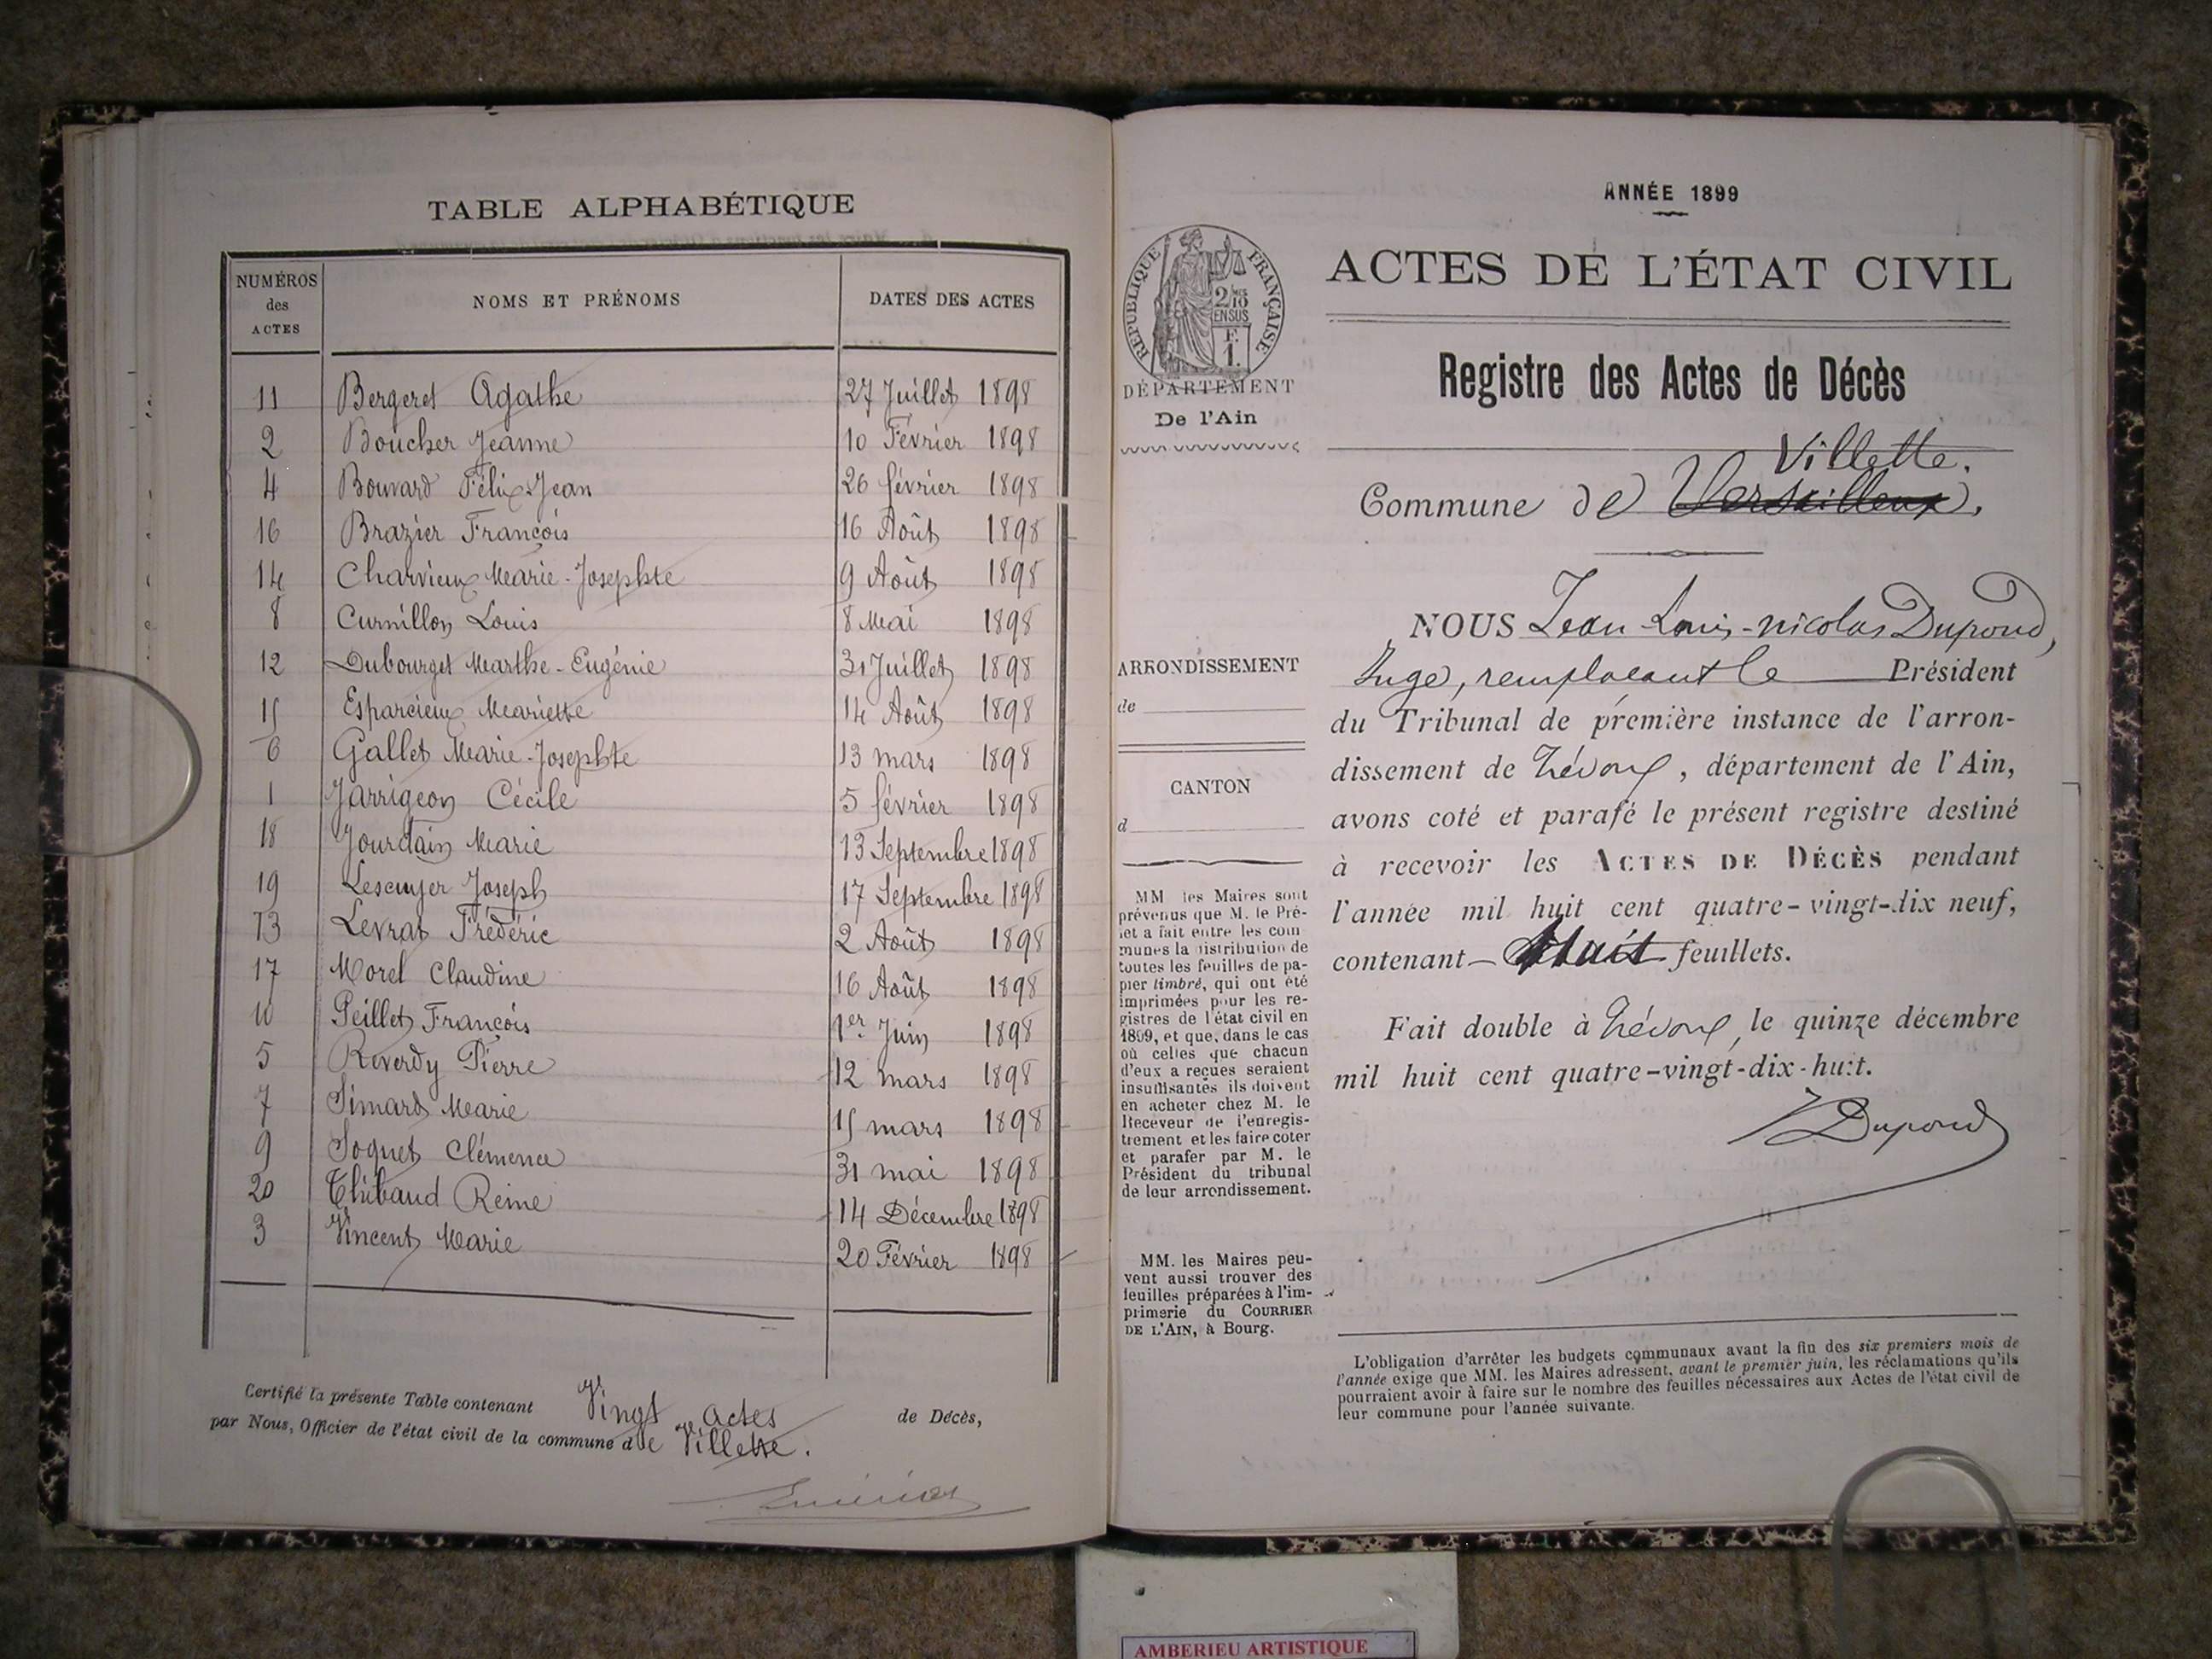 TABLE ALPHABÉTIQUE
NUMÉROS des ACTES
NOMS ET PRÉNOMS
DATES DES ACTES
11 Bergeret Agathe 27 Juillet 1898
2 Boucher Jeanne 10 Février 1898
4 Bouvard Félix Jean 26 février 1898
16 Brazier François 16 Août 1898
14 Charvieux Marie-Josephte 9 Août 1898
8 Curnillon Louis 8 Mai 1898
12 Dubourget Marthe-Eugénie 31 Juillet 1898
15 Esparcieux Mariette 14 Août 1898
6 Gallet Marie-Josephte 13 mars 1898
1 Jarrigeon Cécile 5 février 1898
18 Jourdain Marie 13 Septembre 1898
19 Lescuyer Joseph 17 Septembre 1898
13 Levrat Frédéric 2 Août 1898
17 Morel Claudine 16 Août 1898
10 Peillet François 1er Juin 1898
5 Reverdy Pierre 12 mars 1898
7 Simard Marie 15 mars 1898
9 Soquet Clémence 31 mai 1898
20 Thibaud Reine 14 Décembre 1898
3 Vincent Marie 20 Février 1898
Certifié la présente Table contenant Vingt actes de Décès,
par Nous, Officier de l'état civil de la commune de Villette.
ANNÉE 1899
RÉPUBLIQUE FRANÇAISE
2/10 EN SUS
F. 1.
DÉPARTEMENT
De l'Ain
ARRONDISSEMENT
de
CANTON
d
MM les Maires sont
prévenus que M. le Pré-
fet a fait entre les com
munes la distribution de
toutes les feuilles de pa-
pier timbré, qui ont été
imprimées pour les re-
gistres de l'état civil en
1899, et que, dans le cas
où celles que chacun
d'eux a reçues seraient
insuffisantes ils doivent
en acheter chez M. le
Receveur de l'enregis-
trement et les faire coter
et parafer par M. le
Président du tribunal
de leur arrondissement.
MM. les Maires peu-
vent aussi trouver des
feuilles préparées à l'im-
primerie du COURRIER
DE L'AIN, à Bourg.
ACTES DE L'ÉTAT CIVIL
Registre des Actes de Décès
Villette.
Commune de Versailleux.
NOUS Jean-Louis-Nicolas Dupond,
Juge, remplaçant le Président
du Tribunal de première instance de l'arron-
dissement de Trévoux, département de l'Ain,
avons coté et parafé le présent registre destiné
à recevoir les ACTES DE DÉCÈS pendant
l'année mil huit cent quatre-vingt-dix neuf,
contenant huit feuillets.
Fait double à Trévoux, le quinze décembre
mil huit cent quatre-vingt-dix-huit.
Dupond
L'obligation d'arrêter les budgets communaux avant la fin des six premiers mois de
l'année exige que MM. les Maires adressent, avant le premier juin, les réclamations qu'ils
pourraient avoir à faire sur le nombre des feuilles nécessaires aux Actes de l'état civil de
leur commune pour l'année suivante.
AMBERIEU ARTISTIQUE